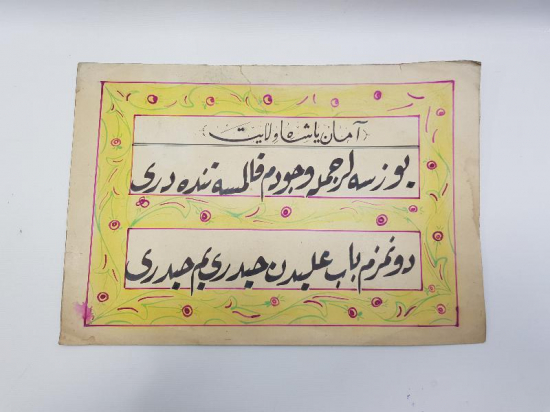 آمان یا شاه ولایت
بوزسه لر جمله وجودم قالمسه تنده دری
دونمزم باب علیدن حیدری یم حیدری